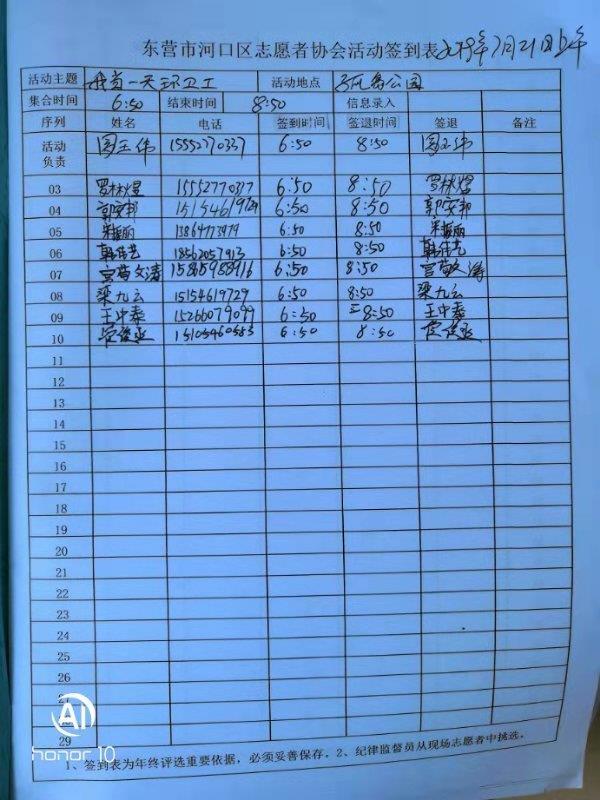 东营市河口区志愿者协会活动签到表 2019年7月21日上午
活动主题 我当一天环卫工 活动地点 公园
集合时间 6:50 结束时间 8:50 信息录入
序列 姓名 电话 签到时间 签退时间 签退 备注
活动负责 伟 15552770337 6:50 8:50 伟
03 罗林煜 15552770317 6:50 8:50 罗林煜
04 郭安邦 15154619729 6:50 8:50 郭安邦
05 丽 13864773979 6:50 8:50 丽
06 韩伟艺 18562057913 6:50 8:50 韩伟艺
07 文涛 6:50 8:50 涛
08 梁九云 15154619729 6:50 8:50 梁九云
09 王中泰 15266079099 6:50 8:50 王中泰
10 15105460553 6:50 8:50
11
12
13
14
15
16
17
18
19
20
21
22
23
24
25
26
27
28
29
1、签到表为年终评选重要依据，必须妥善保存。2、纪律监督员从现场志愿者中挑选。
AI
honor 10